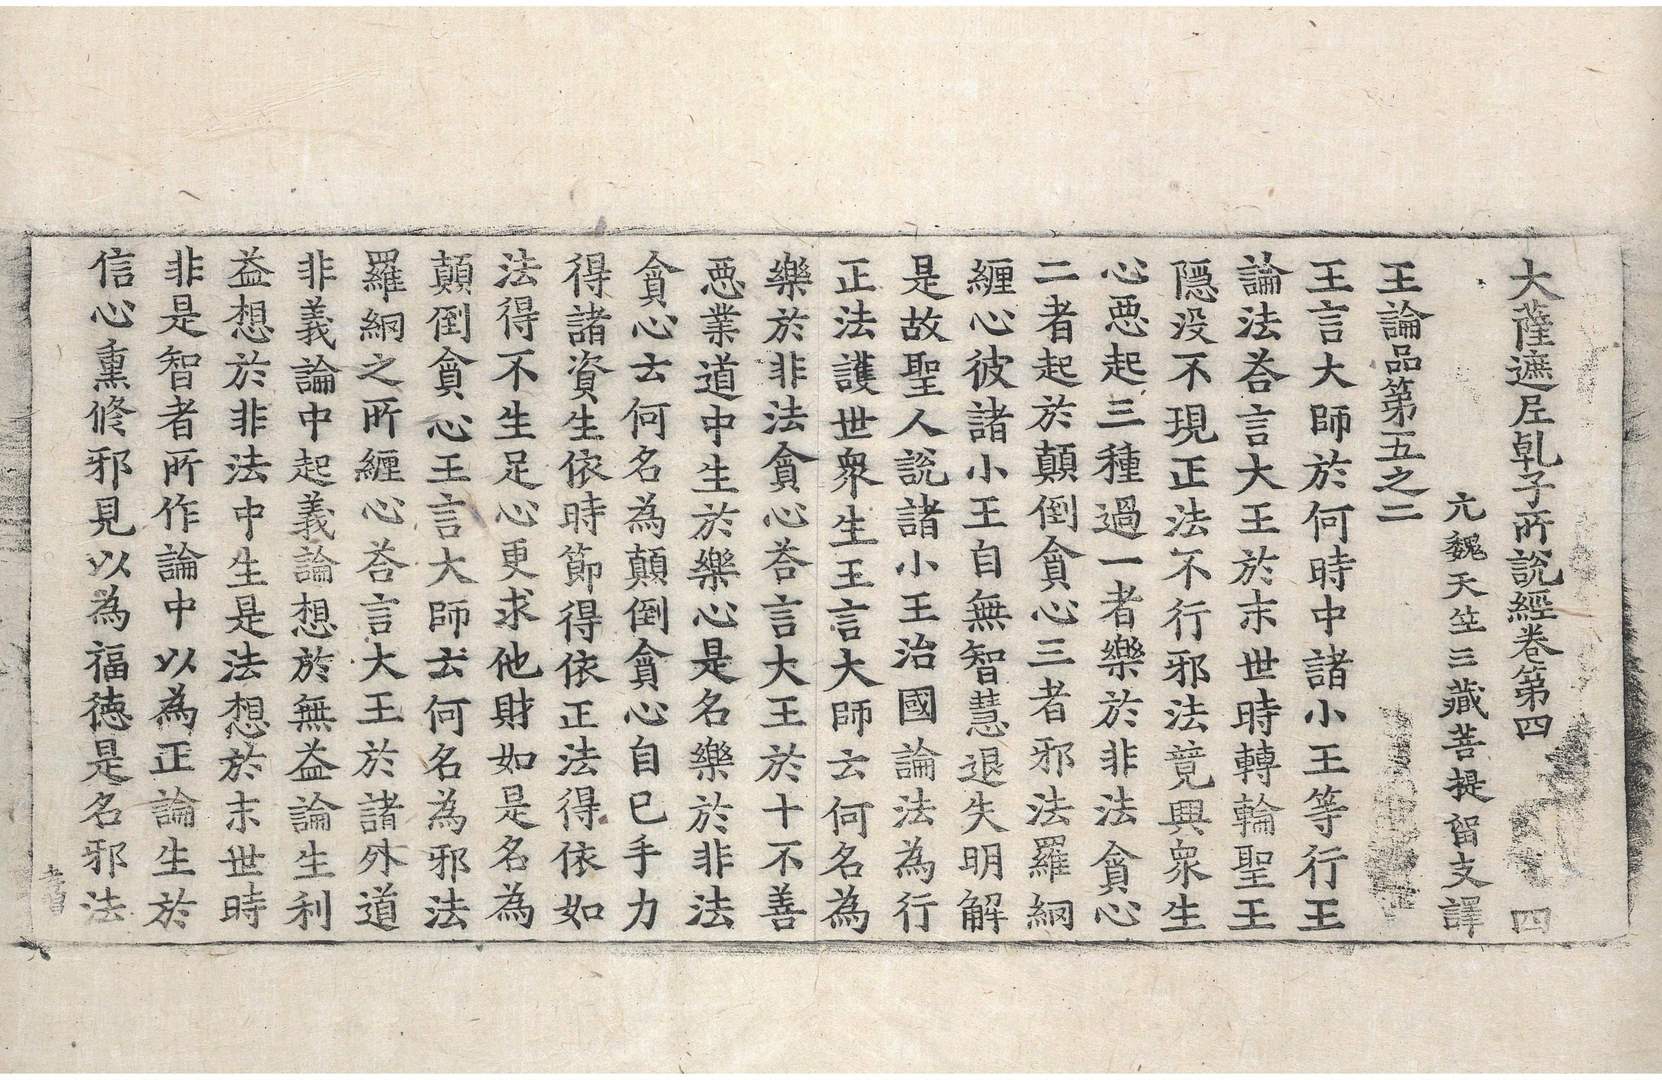 大薩遮尼乹子所說經卷第四 四
元魏天竺三藏菩提留支譯
王論品第五之二
王言大師於何時中諸小王等行王
論法荅言大王於末世時轉輪聖王
隱没不現正法不行邪法竟興衆生
心惡起三種過一者樂於非法貪心
二者起於顛倒貪心三者邪法羅網
纏心彼諸小王自無智慧退失明解
是故聖人說諸小王治國論法為行
正法護世衆生王言大師云何名為
樂於非法貪心荅言大王於十不善
惡業道中生於樂心是名樂於非法
貪心云何名為顛倒貪心自已手力
得諸資生依時節得依正法得依如
法得不生足心更求他財如是名為
顛倒貪心王言大師云何名為邪法
羅網之所纏心荅言大王於諸外道
非義論中起義論想於無益論生利
益想於非法中生是法想於末世時
非是智者所作論中以為正論生於
信心熏修邪見以為福德是名邪法